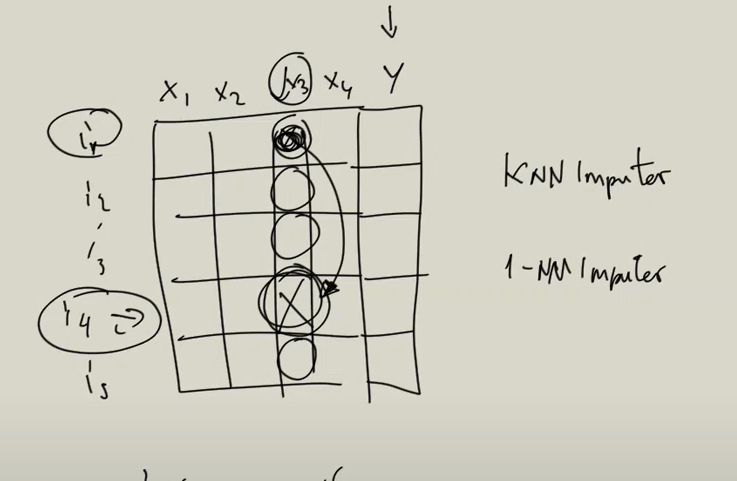 X₁ X₂ X₃ X₄ Y
i₁
i₂
i₃
i₄
i₅
KNN Imputer
1-NN Imputer